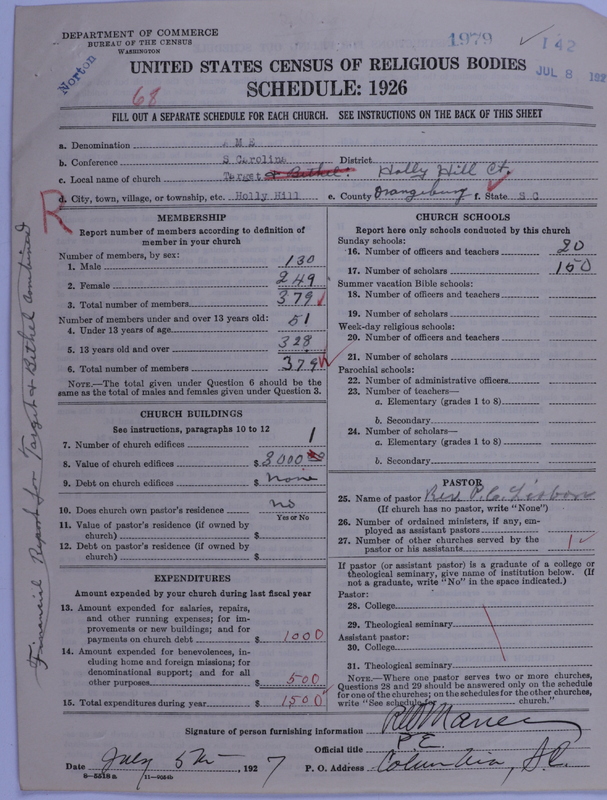 DEPARTMENT OF COMMERCE
BUREAU OF THE CENSUS
WASHINGTON
1979 ✓ 142
Norton
JUL 8 192
UNITED STATES CENSUS OF RELIGIOUS BODIES
68
SCHEDULE: 1926
FILL OUT A SEPARATE SCHEDULE FOR EACH CHURCH. SEE INSTRUCTIONS ON THE BACK OF THIS SHEET
a. Denomination A M E
b. Conference S Carolina District
c. Local name of church Target & Bethel. Holly Hill Ct.
R
d. City, town, village, or township, etc. Holly Hill e. County Orangeburg f. State S C
Financial Report for Target & Bethel Combined
MEMBERSHIP
Report number of members according to definition of
member in your church
Number of members, by sex:
1. Male 130
2. Female 249
3. Total number of members 379
Number of members under and over 13 years old:
4. Under 13 years of age 51
5. 13 years old and over 328
6. Total number of members 379
NOTE.—The total given under Question 6 should be the
same as the total of males and females given under Question 3.
CHURCH BUILDINGS
See instructions, paragraphs 10 to 12
7. Number of church edifices 1
8. Value of church edifices $ 3000 00
9. Debt on church edifices $ none
10. Does church own pastor's residence no
Yes or No
11. Value of pastor's residence (if owned by
church) $
12. Debt on pastor's residence (if owned by
church) $
EXPENDITURES
Amount expended by your church during last fiscal year
13. Amount expended for salaries, repairs,
and other running expenses; for im-
provements or new buildings; and for
payments on church debt $ 1000
14. Amount expended for benevolences, in-
cluding home and foreign missions; for
denominational support; and for all
other purposes $ 500
15. Total expenditures during year $ 1500
CHURCH SCHOOLS
Report here only schools conducted by this church
Sunday schools:
16. Number of officers and teachers 20
17. Number of scholars 150
Summer vacation Bible schools:
18. Number of officers and teachers
19. Number of scholars
Week-day religious schools:
20. Number of officers and teachers
21. Number of scholars
Parochial schools:
22. Number of administrative officers
23. Number of teachers—
a. Elementary (grades 1 to 8)
b. Secondary
24. Number of scholars—
a. Elementary (grades 1 to 8)
b. Secondary
PASTOR
25. Name of pastor Rev. P. C. Lisbon
(If church has no pastor, write "None")
26. Number of ordained ministers, if any, em-
ployed as assistant pastors
27. Number of other churches served by the
pastor or his assistants 1 ✓
If pastor (or assistant pastor) is a graduate of a college or
theological seminary, give name of institution below. (If
not a graduate, write "No" in the space indicated.)
Pastor:
28. College
29. Theological seminary
Assistant pastor:
30. College
31. Theological seminary
NOTE.—Where one pastor serves two or more churches,
Questions 28 and 29 should be answered only on the schedule
for one of the churches; on the schedules for the other churches,
write "See schedule for church."
Signature of person furnishing information
Official title P. E.
Date July 5th, 1927 P. O. Address Columbia, S.C.
8—5518a 11—9084b